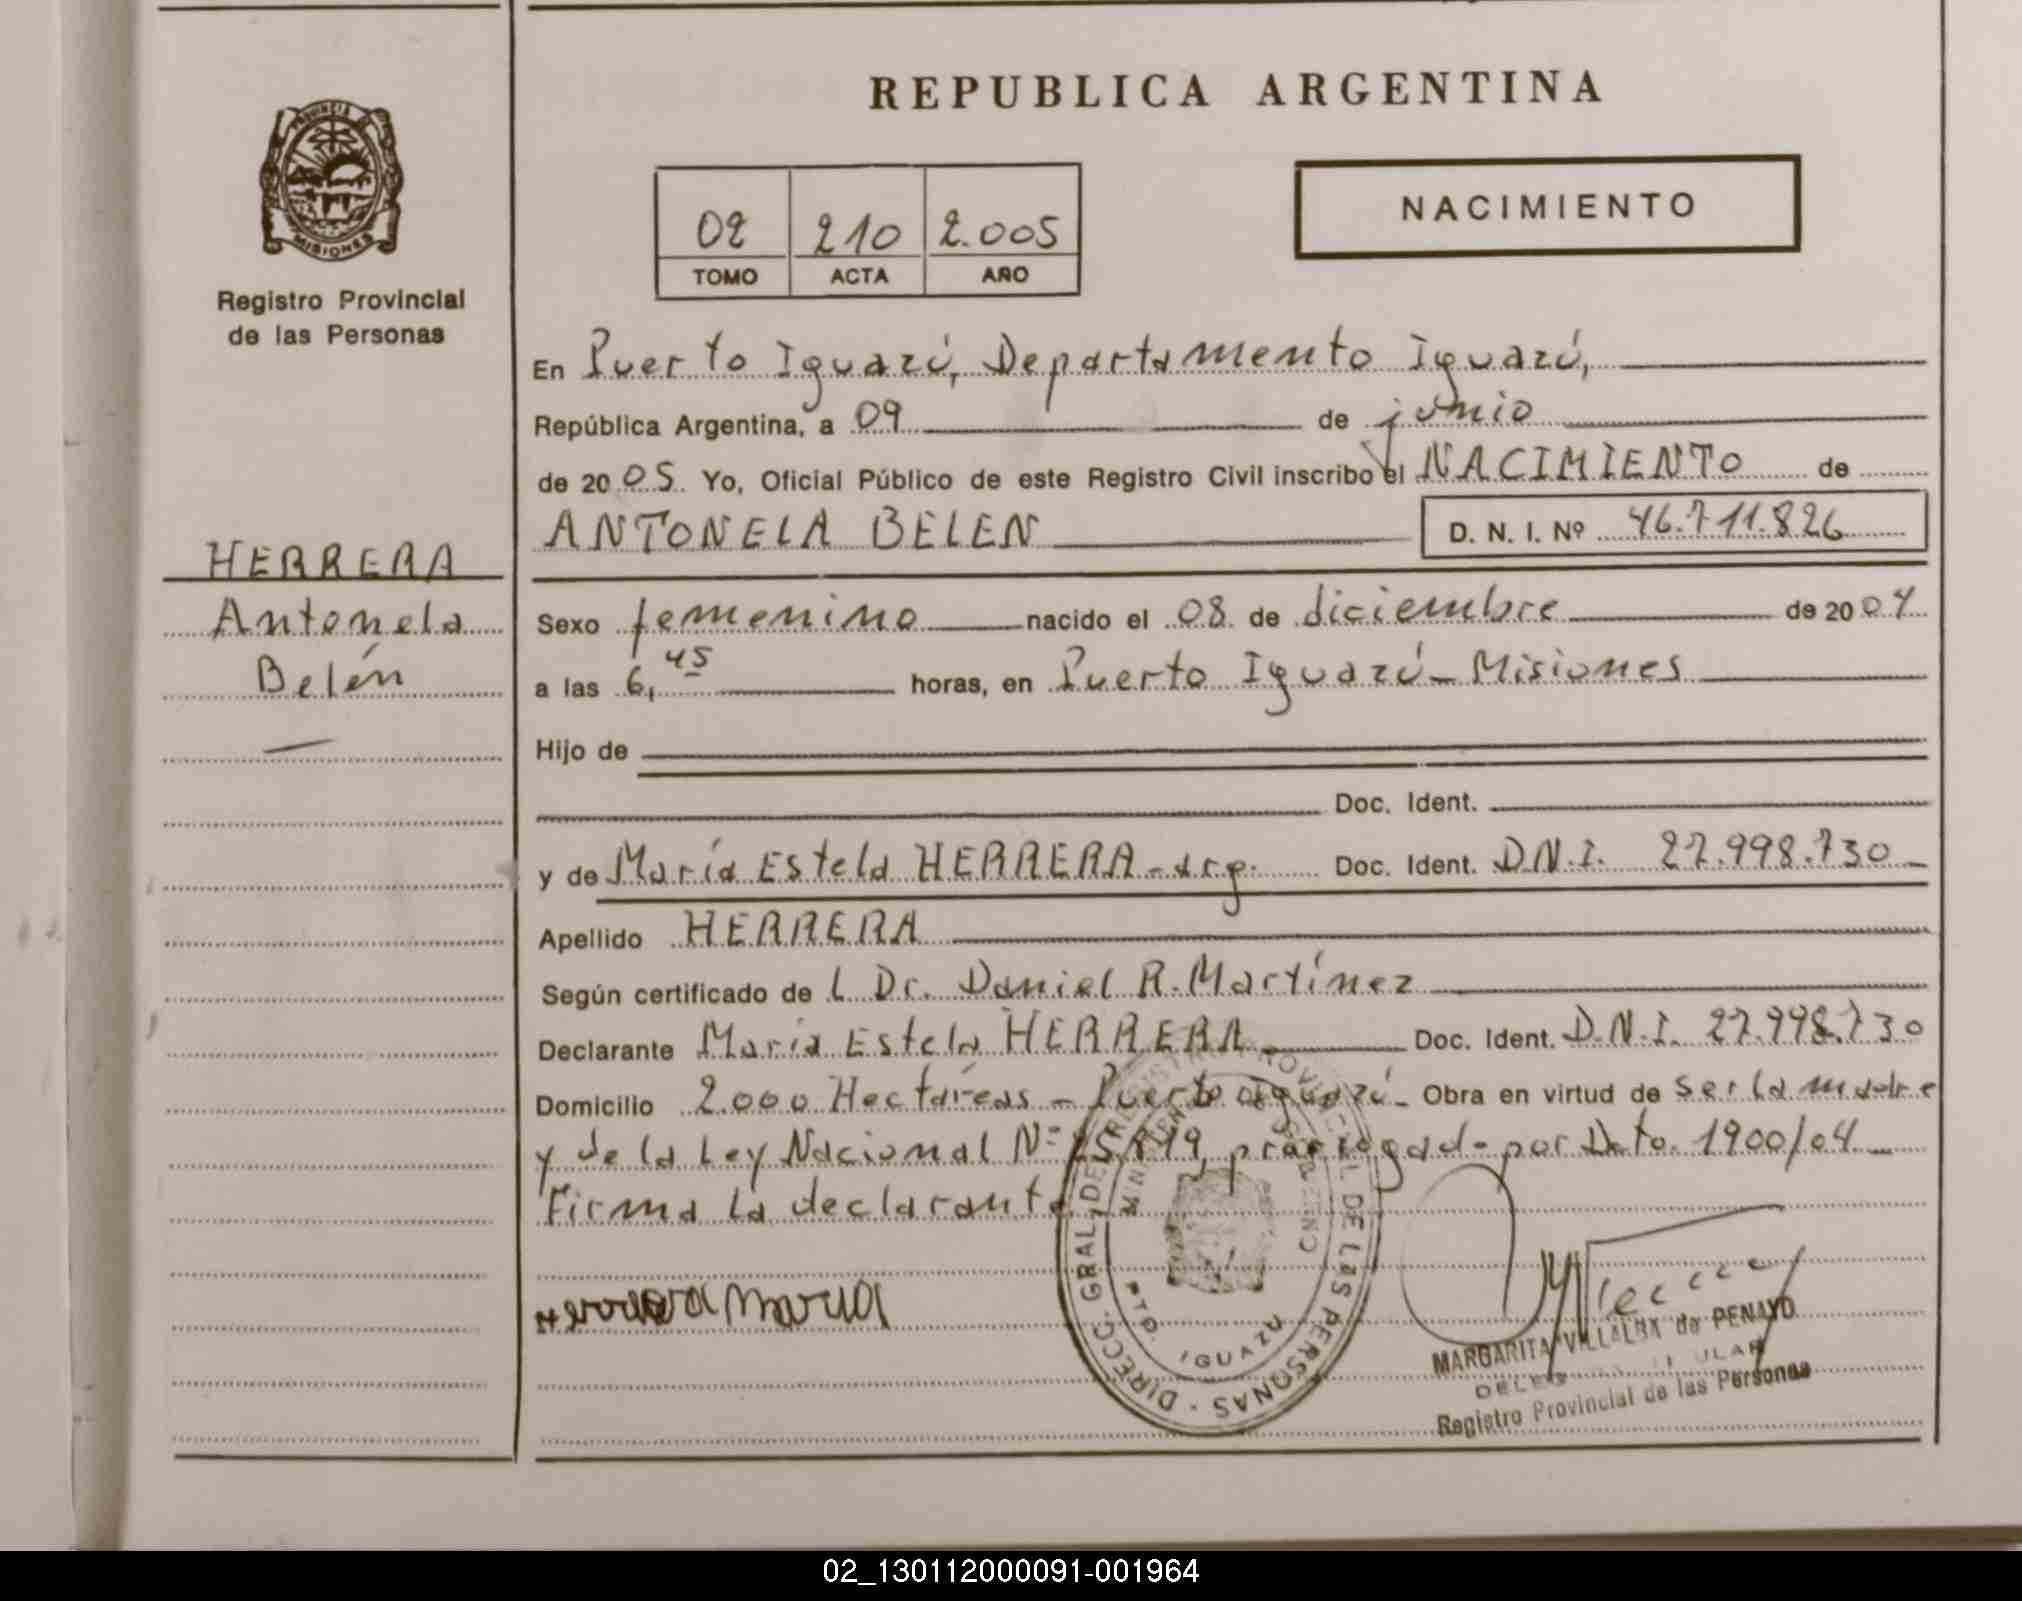 REPUBLICA ARGENTINA
PROVINCIA DE
MISIONES
Registro Provincial
de las Personas
02 210 2.005
TOMO ACTA AÑO
NACIMIENTO
En Puerto Iguazú, Departamento Iguazú,
República Argentina, a 09 de junio
de 2005. Yo, Oficial Público de este Registro Civil inscribo el NACIMIENTO de
ANTONELA BELEN D. N. I. Nº 46.711.826
HERRERA
Antonela
Belén
Sexo femenino nacido el 08 de diciembre de 2004
a las 6,45 horas, en Puerto Iguazú - Misiones
Hijo de
Doc. Ident.
y de María Estela HERRERA - arg. Doc. Ident. D.N.I. 27.998.730
Apellido HERRERA
Según certificado de l Dr. Daniel R. Martínez
Declarante María Estela HERRERA Doc. Ident. D.N.I. 27.998.730
Domicilio 2.000 Hectáreas - Puerto Iguazú - Obra en virtud de ser la madre
y de la Ley Nacional Nº por Dcto. 1900/04
Firma la declarante
Herrera Maria
DIRECC. GRAL. DEL REGISTRO PROVINCIAL DE LAS PERSONAS
PTO. IGUAZU
MARGARITA VILLALBA de PENAYO
Registro Provincial de las Personas
02_130112000091-001964